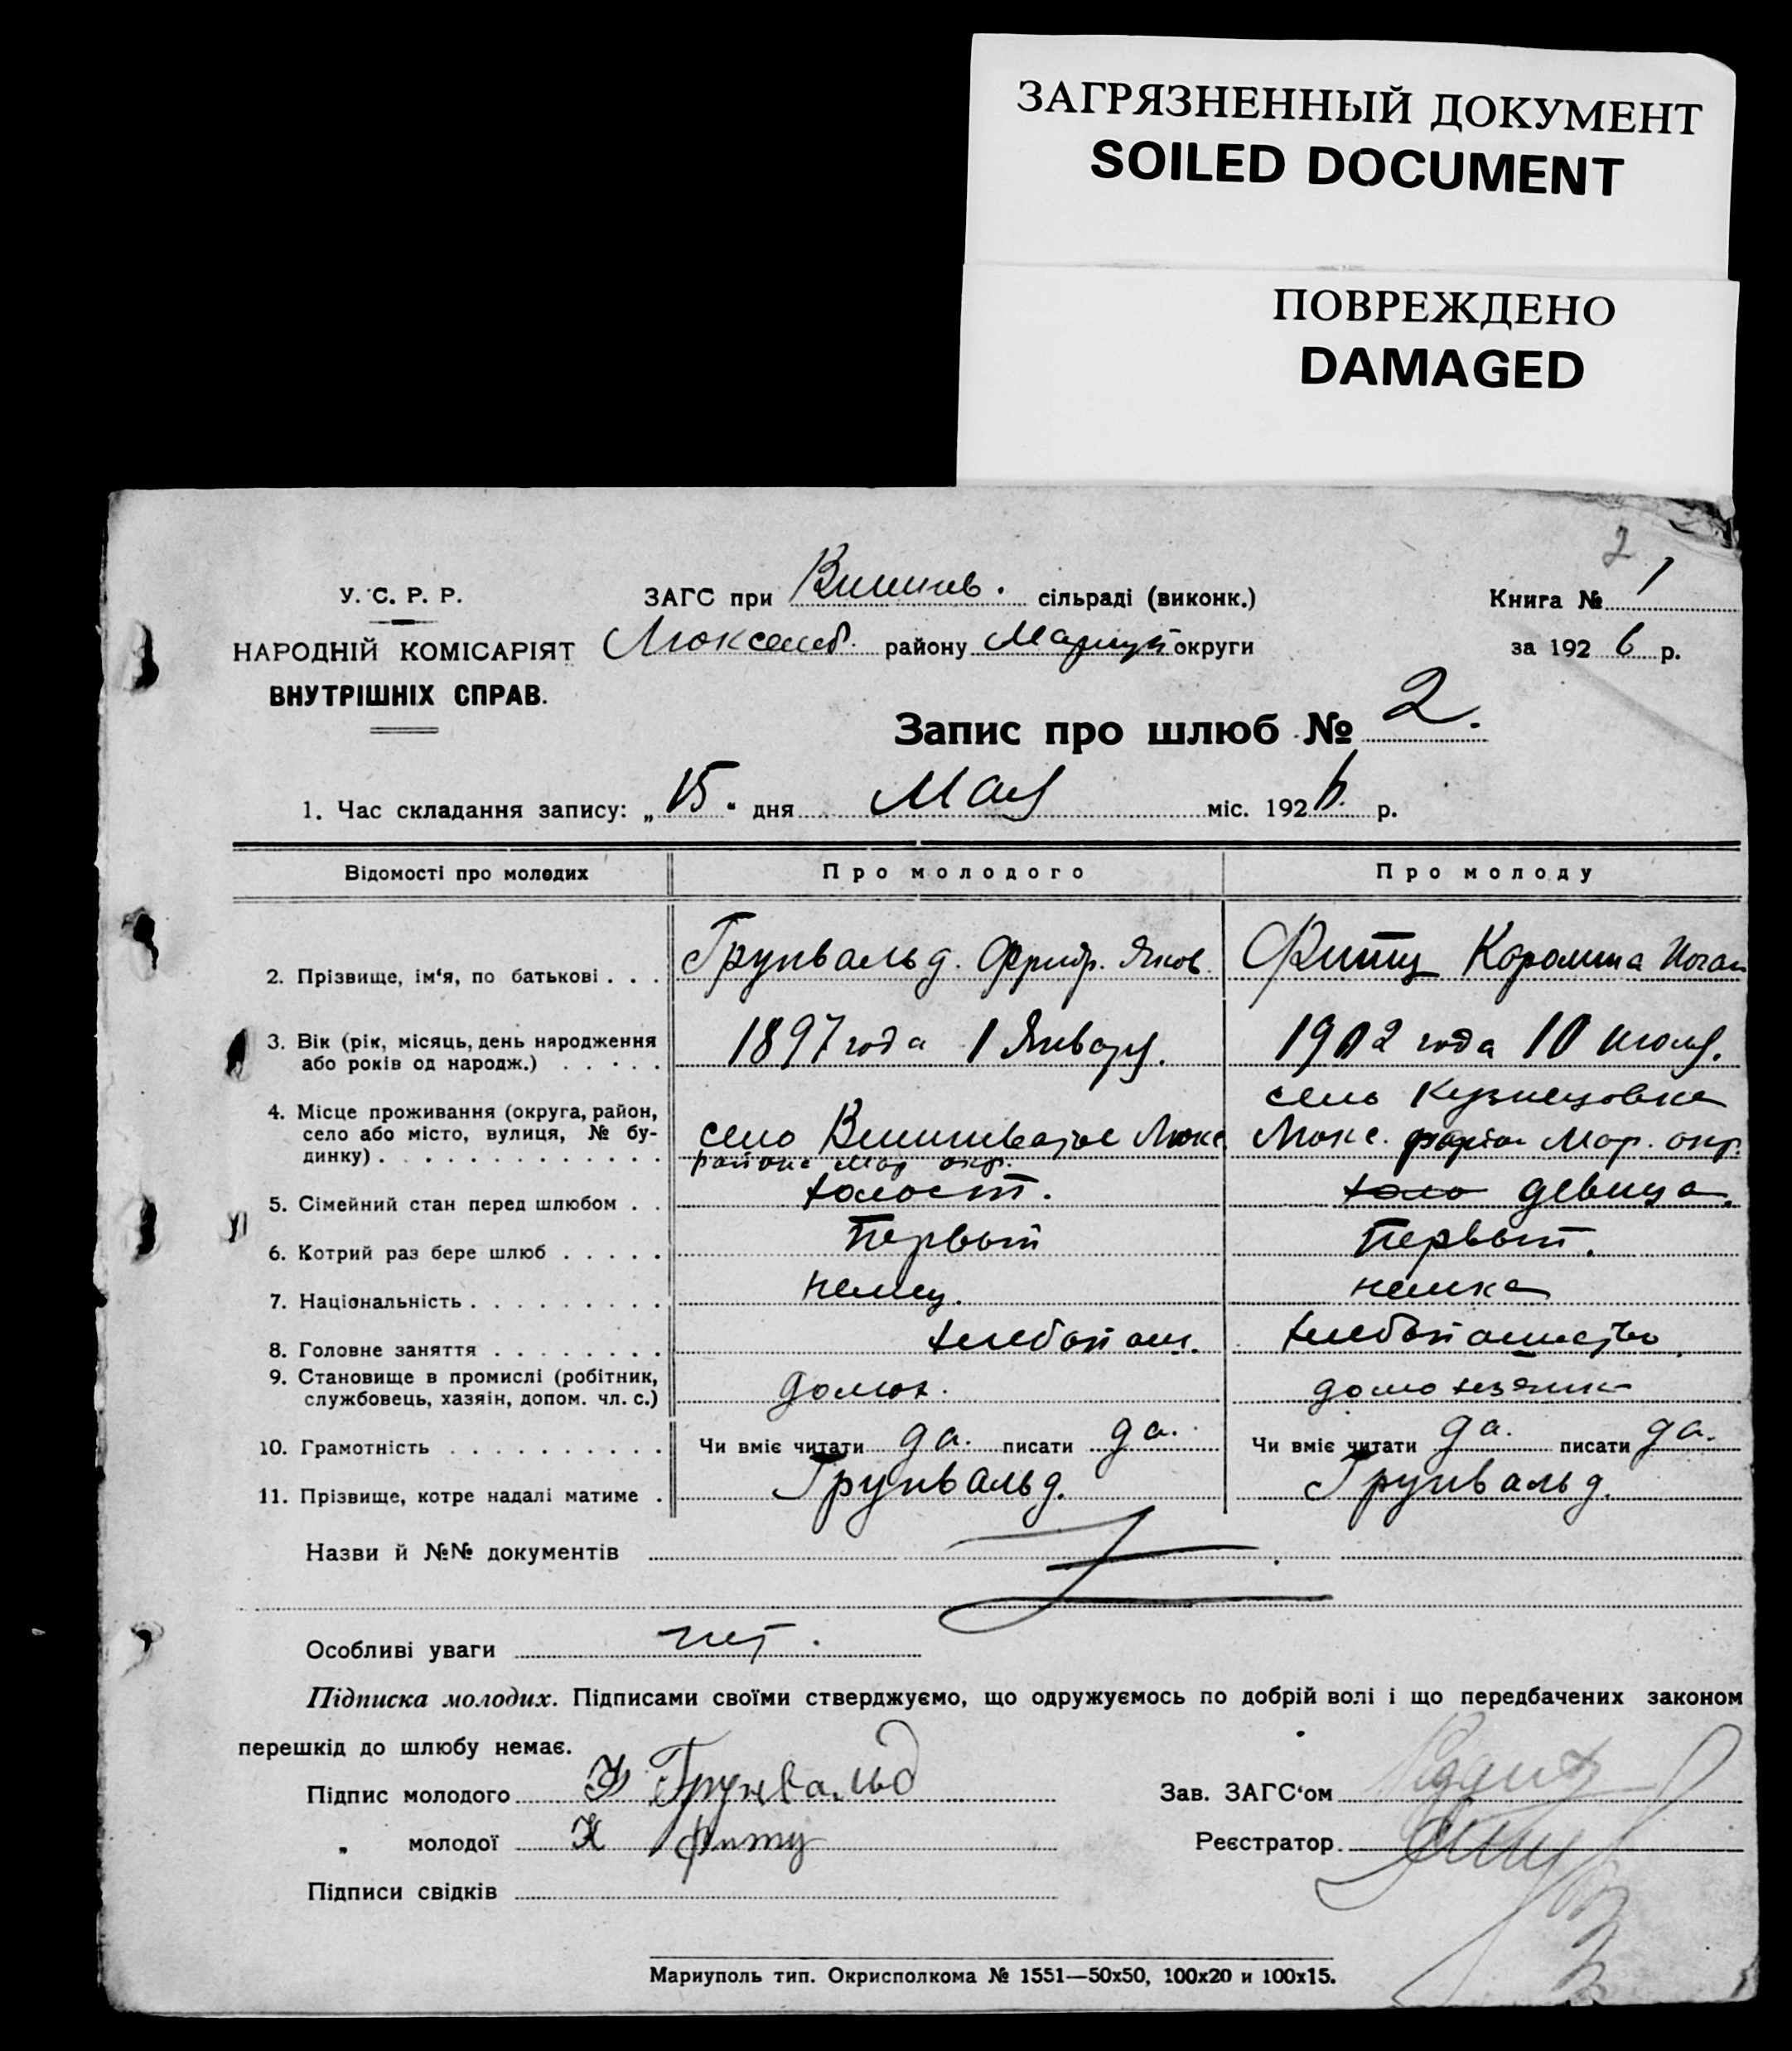 ЗАГРЯЗНЕННЫЙ ДОКУМЕНТ
SOILED DOCUMENT
ПОВРЕЖДЕНО
DAMAGED
2
У. С. Р. Р.
НАРОДНІЙ КОМІСАРІЯТ
ВНУТРІШНІХ СПРАВ.
ЗАГС при Вишнев. сільраді (виконк.)
Люксемб. району Мариуп округи
Книга № 1
за 1926 р.
Запис про шлюб № 2.
1. Час складання запису: „15“ дня Мая міс. 1926 р.
Відомості про молодих Про молодого Про молоду
2. Прізвище, ім‘я, по батькові . . . Грунвальд. Фридр. Яков. Фитц Каролина Иоган
3. Вік (рік, місяць, день народження
або років од народж.) . . . . . 1897 года 1 Января. 1902 года 10 июля.
село Кузнецовка
4. Місце проживання (округа, район,
село або місто, вулиця, № бу-
динку) . . . . . . . . . . . . . село Люкс. Люкс. Мар. окр.
района Мар окр.
5. Сімейний стан перед шлюбом . . холост. холо девица.
6. Котрий раз бере шлюб . . . . . Первый Первый.
7. Національність . . . . . . . . . немец. немка
8. Головне заняття . . . . . . . . хлебопаш. хлебопашество.
9. Становище в промислі (робітник,
службовець, хазяїн, допом. чл. с.) домох. домохозяика
10. Грамотність . . . . . . . . . . Чи вміє читати да. писати да. Чи вміє читати да. писати да.
11. Прізвище, котре надалі матиме . Грунвальд. Грунвальд.
Назви й №№ документів
Особливі уваги нет.
Підписка молодих. Підписами своїми стверджуємо, що одружуємось по добрій волі і що передбачених законом
перешкід до шлюбу немає.
Підпис молодого Ф Грунвальд
Зав. ЗАГС‘ом
„ молодої К Фитц
Реєстратор
Підписи свідків
Мариуполь тип. Окрисполкома № 1551—50х50, 100х20 и 100х15.